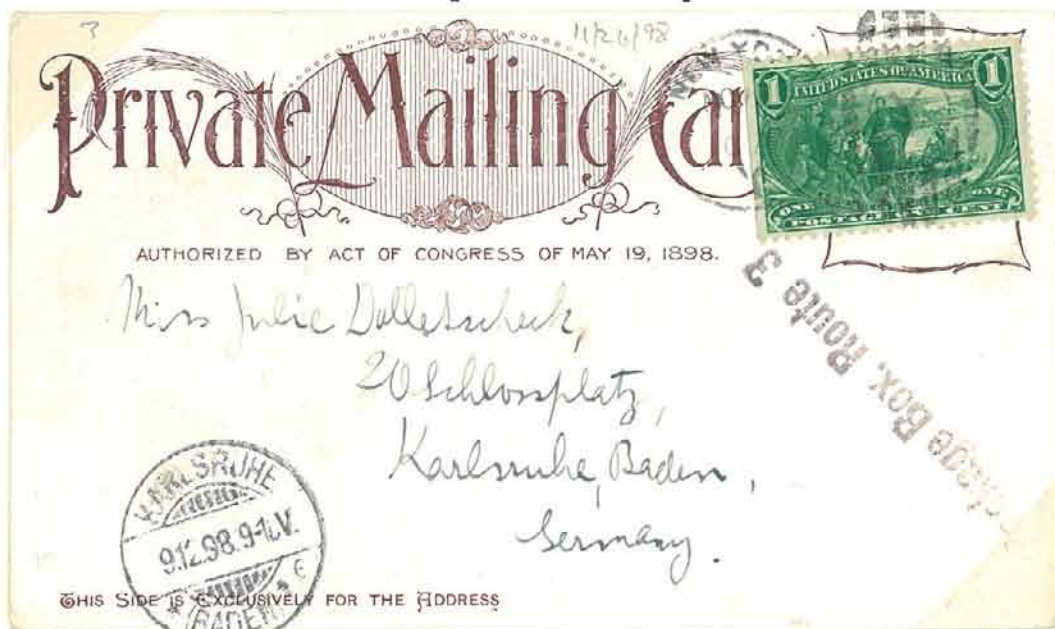 11/26/98
Private Mailing Car
1 UNITED STATES OF AMERICA 1
ONE POSTAGE ONE CENT ONE
AUTHORIZED BY ACT OF CONGRESS OF MAY 19, 1898.
Route 3
Box,
Miss Julie
20 Schlossplatz,
Karlsruhe, Baden,
Germany.
KARLSRUHE
9.12.98.9-10V.
(BADEN)
THIS SIDE IS EXCLUSIVELY FOR THE ADDRESS